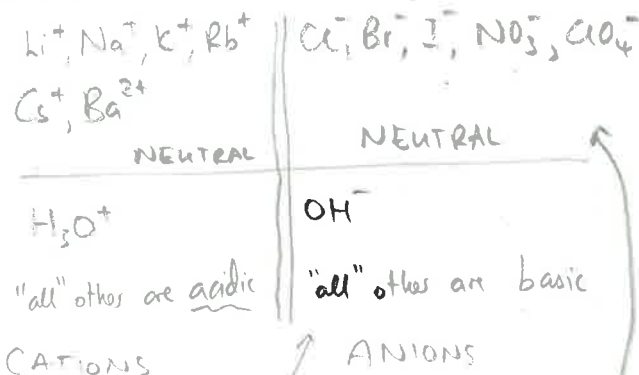 Li⁺, Na⁺, K⁺, Rb⁺
Cs⁺, Ba²⁺
NEUTRAL
Cl⁻, Br⁻, I⁻, NO₃⁻, ClO₄⁻
NEUTRAL
H₃O⁺
"all" othes are acidic
CATIONS
OH⁻
"all" othes are basic
ANIONS